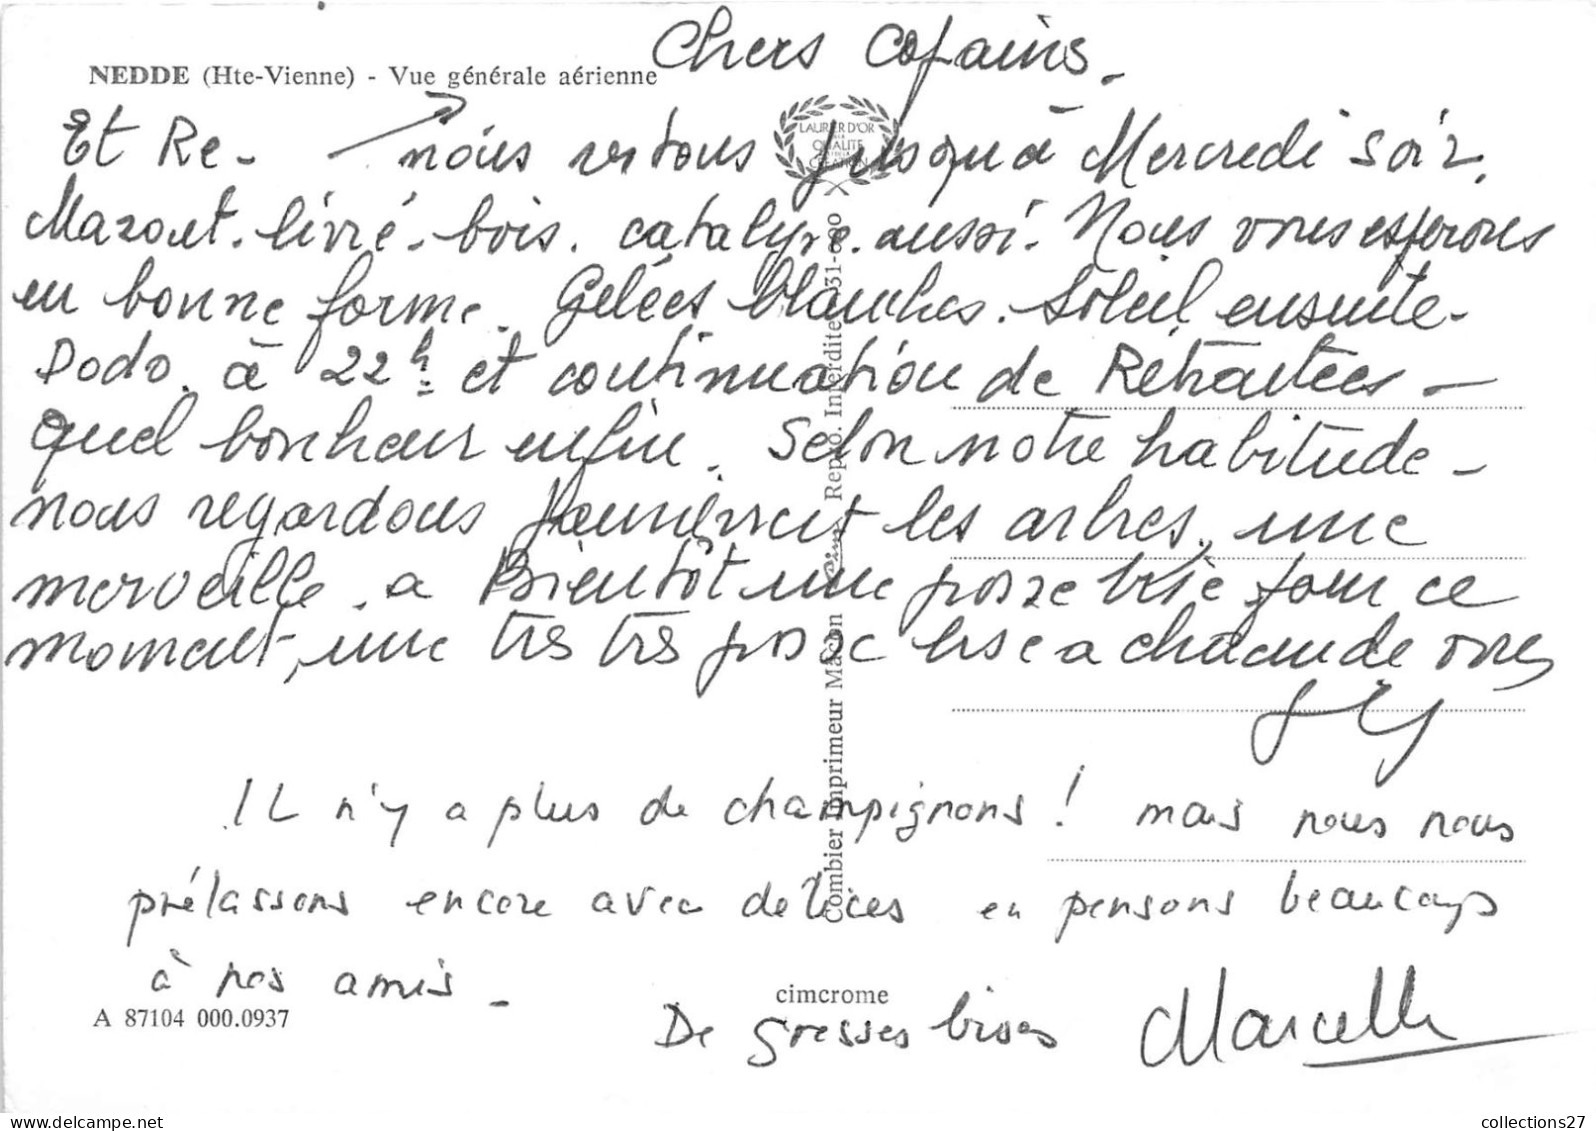 Chers copains.
NEDDE (Hte-Vienne) - Vue générale aérienne
LAURIER D'OR
QUALITÉ
CRÉATION
Et Re- nous restons jusqu'à Mercredi soir.
Mazout. livré. bois. catalyse. aussi. Nous vous espérons
en bonne forme. Gelées blanches. Soleil ensuite.
Dodo. à 22h et continuation de Retraitées -
quel bonheur enfin. Selon notre habitude -
nous regardons jaunirent les arbres, une
merveille. a Bientôt une grosse bise pour ce
moment, une très très grosse bise a chacun de vous
IL n'y a plus de champignons ! mais nous nous
prélassons encore avec delices en pensons beaucoup
à nos amis -
De grosses bises Marcelle
cimcrome
A 87104 000.0937
Combier Imprimeur Mâcon Repro. Interdite
collections27